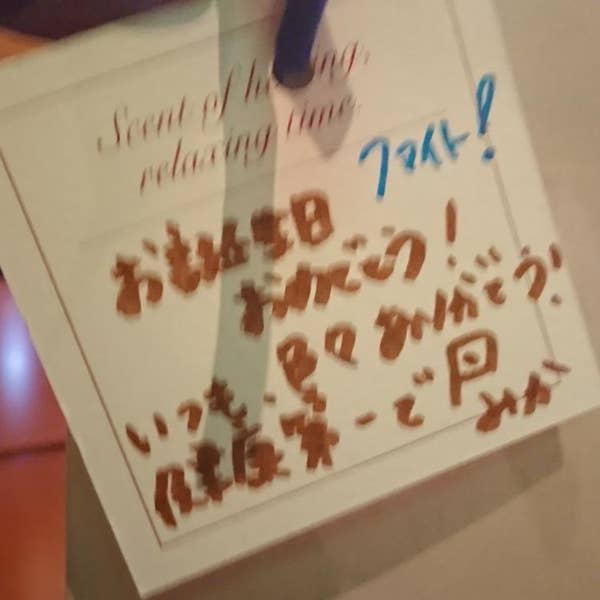 Scent of healing,
relaxing time.
ファイト!
お誕生日
おめでとう!
いつも、色々ありがとう!
健康第一で
みか